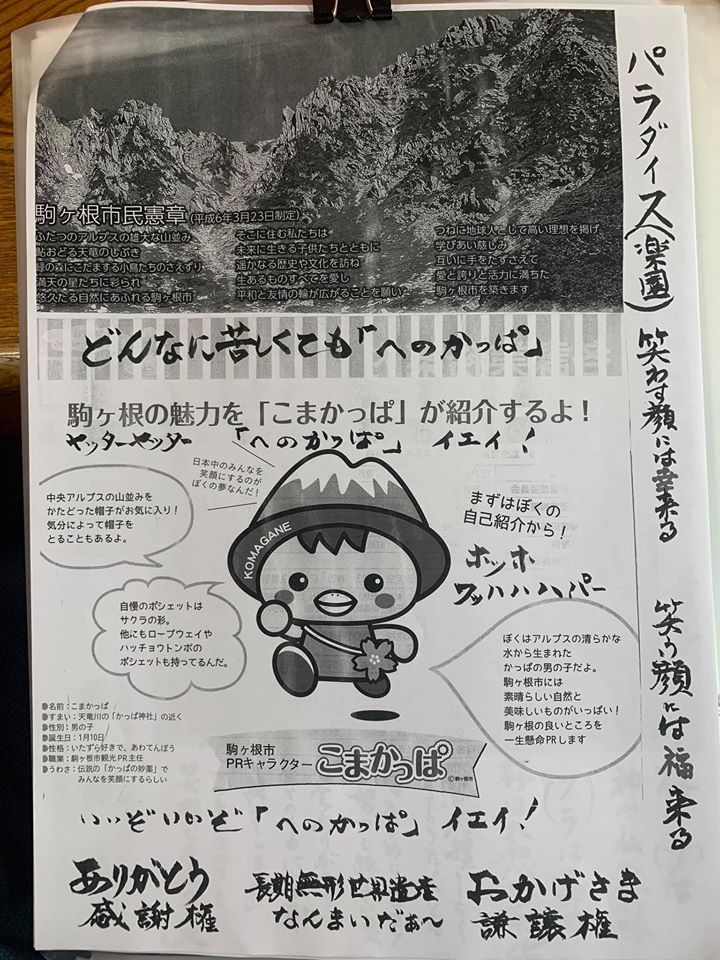 パラダイス(楽園)
笑わす顔には幸来る
笑う顔には福来る
駒ヶ根市民憲章(平成6年3月23日制定)
ふたつのアルプスの雄大な山並み
鮎おどる天竜のしぶき
緑の森にこだまする小鳥たちのさえずり
満天の星たちに彩られ
悠久たる自然にあふれる駒ヶ根市
そこに住む私たちは
未来に生きる子供たちとともに
遥かなる歴史や文化を訪ね
生あるものすべてを愛し
平和と友情の輪が広がることを願い
つねに地球人として高い理想を掲げ
学びあい慈しみ
互いに手をたずさえて
愛と誇りと活力に満ちた
駒ヶ根市を築きます
どんなに苦しくても「へのかっぱ」
駒ヶ根の魅力を「こまかっぱ」が紹介するよ!
ヤッターヤッター 「へのかっぱ」 イエイ!
日本中のみんなを
笑顔にするのが
ぼくの夢なんだ!
中央アルプスの山並みを
かたどった帽子がお気に入り!
気分によって帽子を
とることもあるよ。
まずはぼくの
自己紹介から!
ホッホ
ワッハハハハパー
KOMAGANE
自慢のポシェットは
サクラの形。
他にもロープウェイや
ハッチョウトンボの
ポシェットも持ってるんだ。
ぼくはアルプスの清らかな
水から生まれた
かっぱの男の子だよ。
駒ヶ根市には
素晴らしい自然と
美味しいものがいっぱい!
駒ヶ根の良いところを
一生懸命PRします
名前:こまかっぱ
すまい:天竜川の「かっぱ神社」の近く
性別:男の子
誕生日:1月10日
性格:いたずら好きで、あわてんぼう
職業:駒ヶ根市観光PR主任
うわさ:伝説の「かっぱの妙薬」で
みんなを笑顔にするらしい
駒ヶ根市
PRキャラクター こまかっぱ
©駒ヶ根市
いいぞいいぞ「へのかっぱ」 イエイ!
ありがとう
感謝権
長期無形世界遺産
なんまいだぁ〜
おかげさま
謙譲権